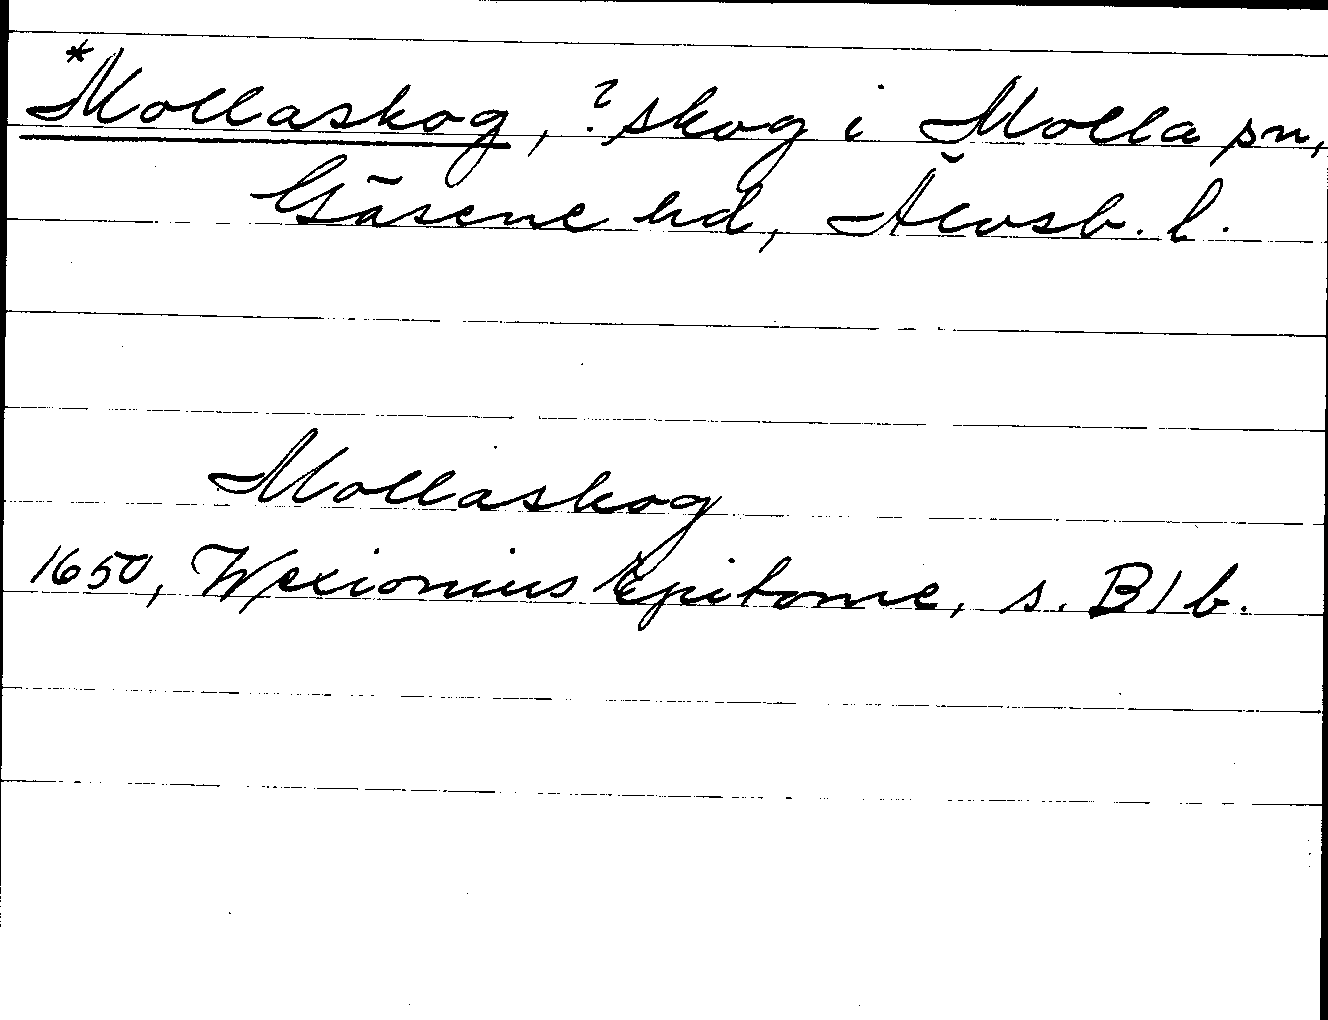 *Mollaskog, ? skog i Molla sn,
Gäsene hd, Älvsb. l.
Mollaskog
1650, Wexionius Epitome, s. B1b.